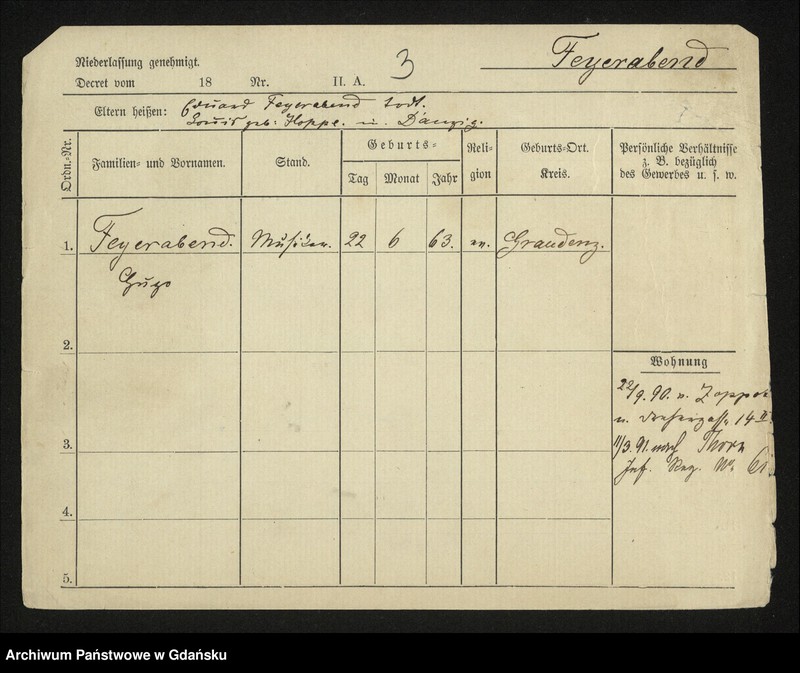 Niederlassung genehmigt.
Decret vom 18 Nr. II. A. 3
Feyerabend
Eltern heißen: Eduard Feyerabend todt.
Louis geb: Hoppe. in Danzig.
Ordn.-Nr.
Familien- und Vornamen.
Stand.
Geburts-
Tag Monat Jahr
Reli-
gion
Geburts-Ort.
Kreis.
Persönliche Verhältnisse
z. B. bezüglich
des Gewerbes u. s. w.
1. Feyerabend. Musiker. 22 6 63. ev. Graudenz.
Hugo
2.
Wohnung
22/9. 90. v. Zoppot
n. 14 II.
3.
11/3. 91. nach Thorn
Inf. Reg. No. 61.
4.
5.
Archiwum Państwowe w Gdańsku